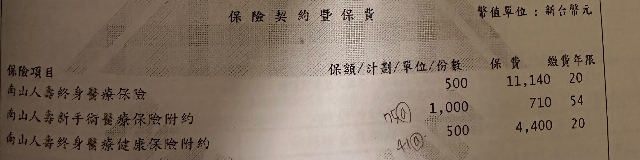 保險契約暨保費
幣值單位：新台幣元
保險項目 保額/計劃/單位/份數 保費 繳費年限
南山人壽終身醫療保險 500 11,140 20
南山人壽新手術醫療保險附約 1,000 710 54
南山人壽終身醫療健康保險附約 500 4,400 20